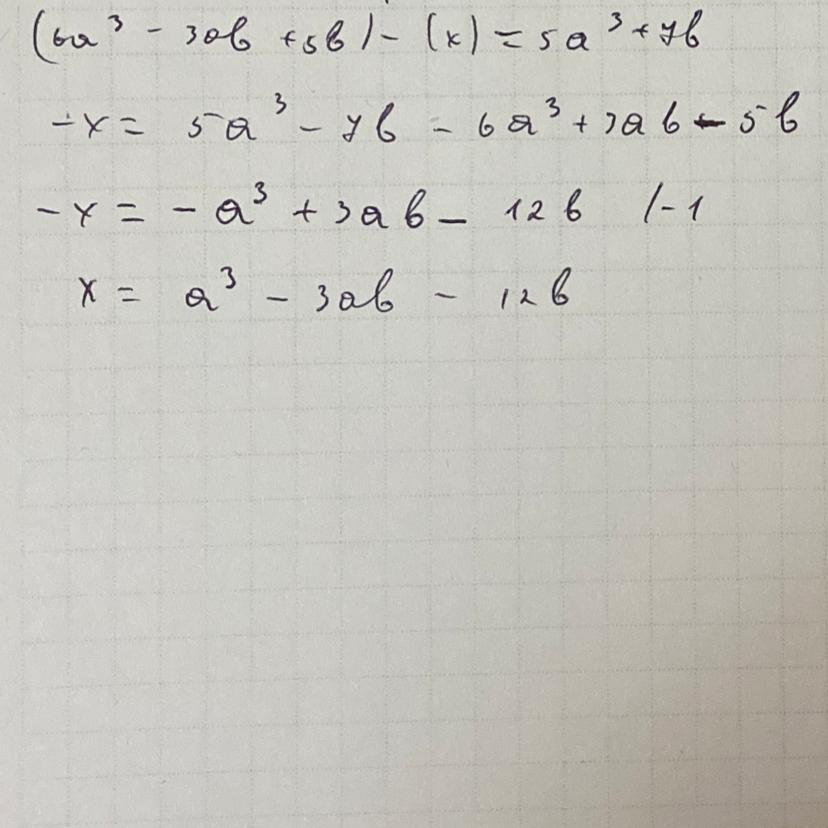 (6a³ - 3ab + 5b) - (x) = 5a³ + 7b
-x = 5a³ - 7b - 6a³ + 3ab - 5b
-x = -a³ + 3ab - 12b /-1
x = a³ - 3ab - 12b